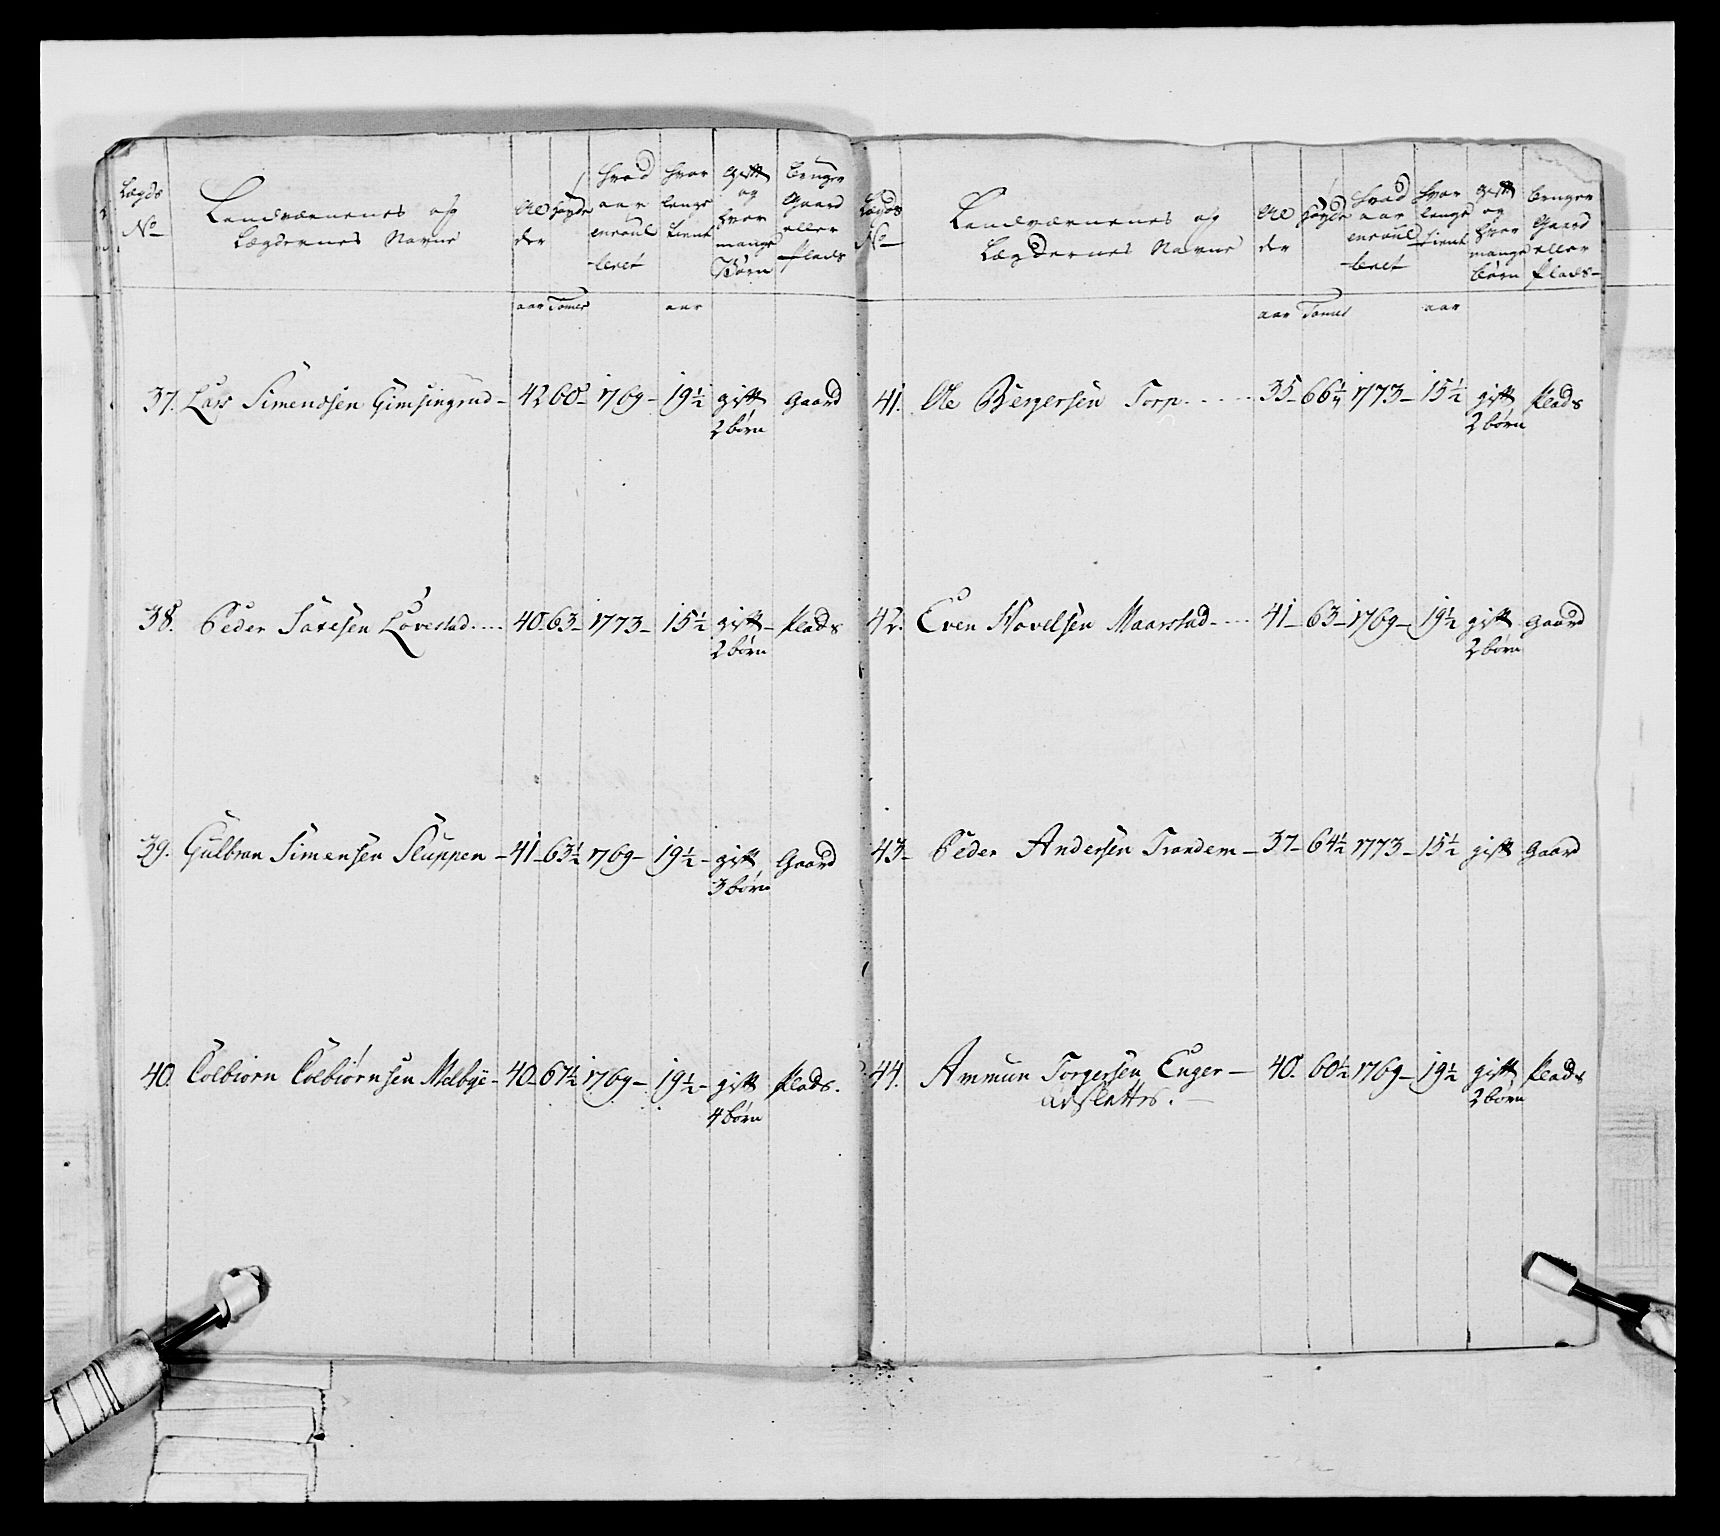 Lægds
No
Landværnenes og
Lægdernes Navne
Al
der
Høyde
hvad
aar
enroul
leret
hvor
lenge
tient
gift
og
hvor
mange
Børn
bruger
Gaard
eller
Plads
aar Tomer aar
37. Lars Simensen Gimsingrud - 42 60 - 1769 - 19½ gift Gaard
2 børn
38. Peder Larsen Løvestad .... 40 - 63 - 1773 - 15½ gift - Plads
2 børn
39. Gulbran Simensen Sluppen - 41 - 63½ 1769 - 19½ - gift Gaard
3 børn
40. Colbiørn Colbiørnsen Melbye - 40 - 67½ 1769 - 19½ - gift Plads.
4 børn
Lægds
No
Landværnenes og
Lægdernes Navne
Al
der
Høyde
hvad
aar
enroul
leret
hvor
lenge
tient
gift
og
hvor
mange
børn
bruger
Gaard
eller
Plads -
aar Tomer aar
41. Ole Bergersen Torp ..... 35 - 66¼ 1773 - 15½ gift Plads
2 børn
42. Even Hovelsen Maarstad .... 41 - 63 - 1769 - 19½ gift Gaard
2 børn
43 - Peder Andersen Trandem - 37 - 64½ 1773 - 15½ gift Gaard
44. Ammun Torgersen Enger - 40. 60½ 1769 - 19½ gift Plads
Adslettes. - 2 børn